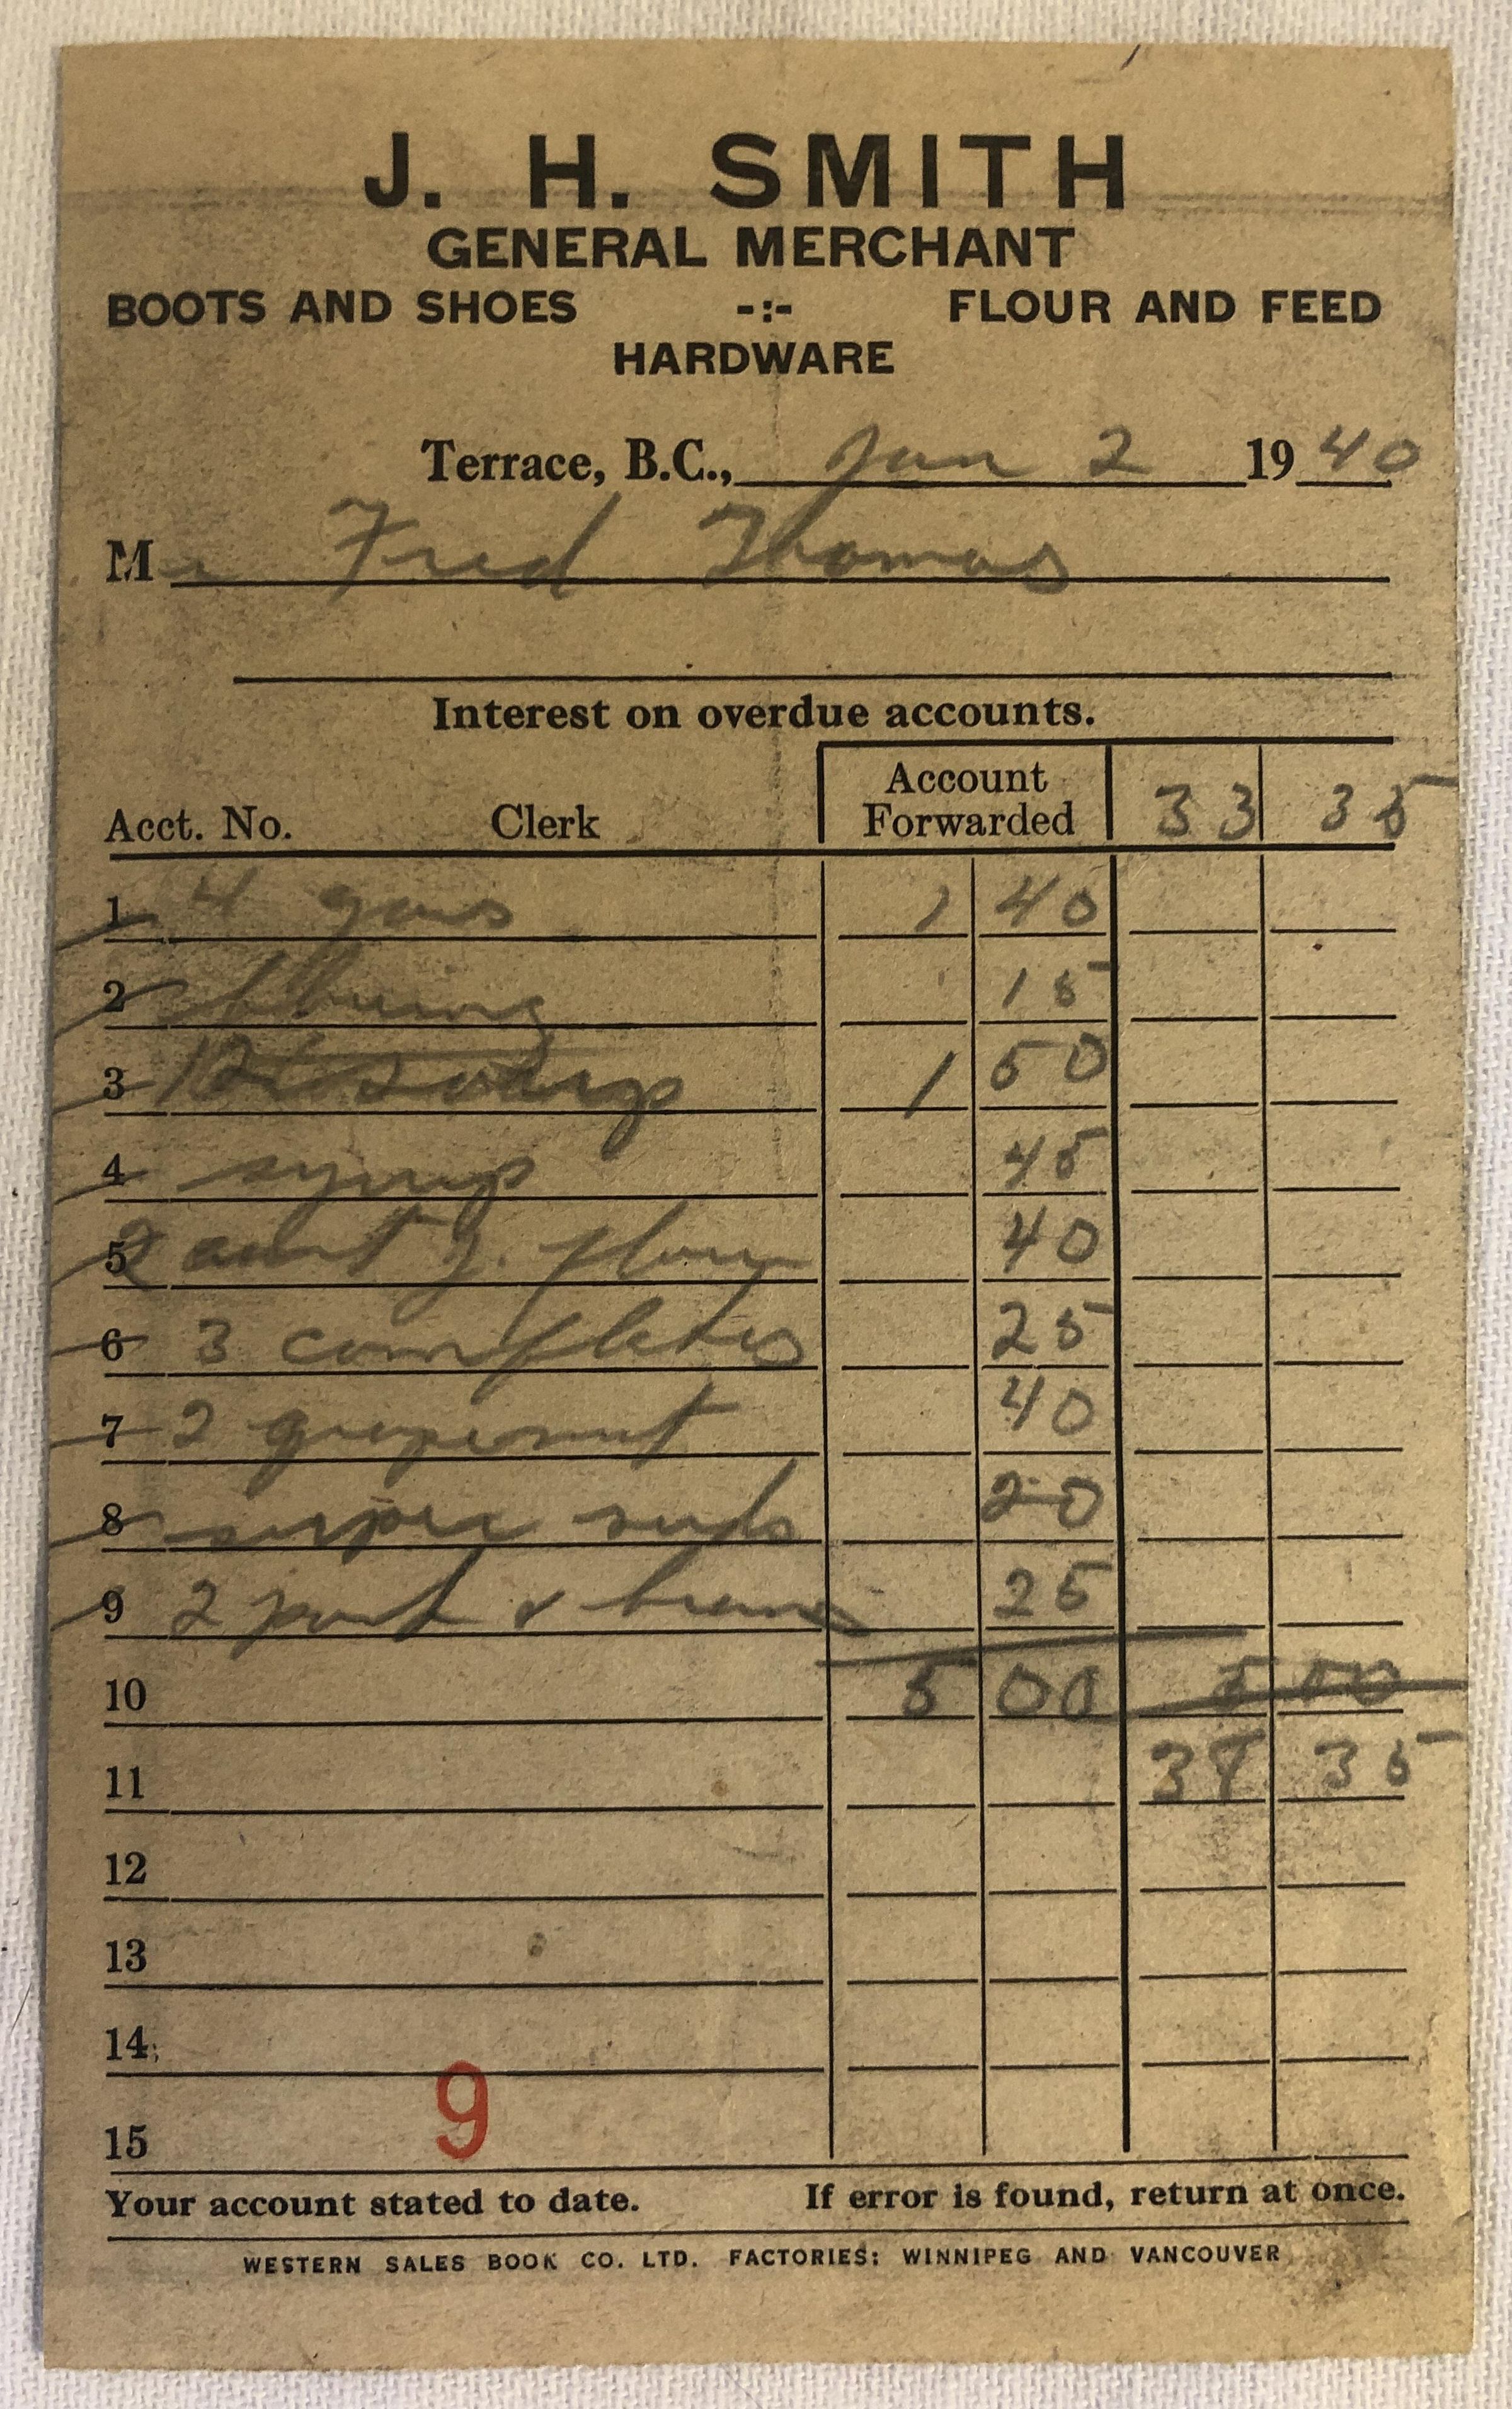 J. H. SMITH
GENERAL MERCHANT
BOOTS AND SHOES -:- FLOUR AND FEED
HARDWARE
Terrace, B.C., Jan 2 1940
Mr Fred Thomas
Interest on overdue accounts.
Acct. No. Clerk Account Forwarded 33 35
1 4 gas 1 40
2 15
3 1 50
4 syrup 45
5 2 aunt J. flour 40
6 3 cornflakes 25
7 2 grapenut 40
8 super suds 20
9 2 pork & beans 25
10 5 00 5 00
11 38 35
12
13
14
15 9
Your account stated to date. If error is found, return at once.
WESTERN SALES BOOK CO. LTD. FACTORIES: WINNIPEG AND VANCOUVER